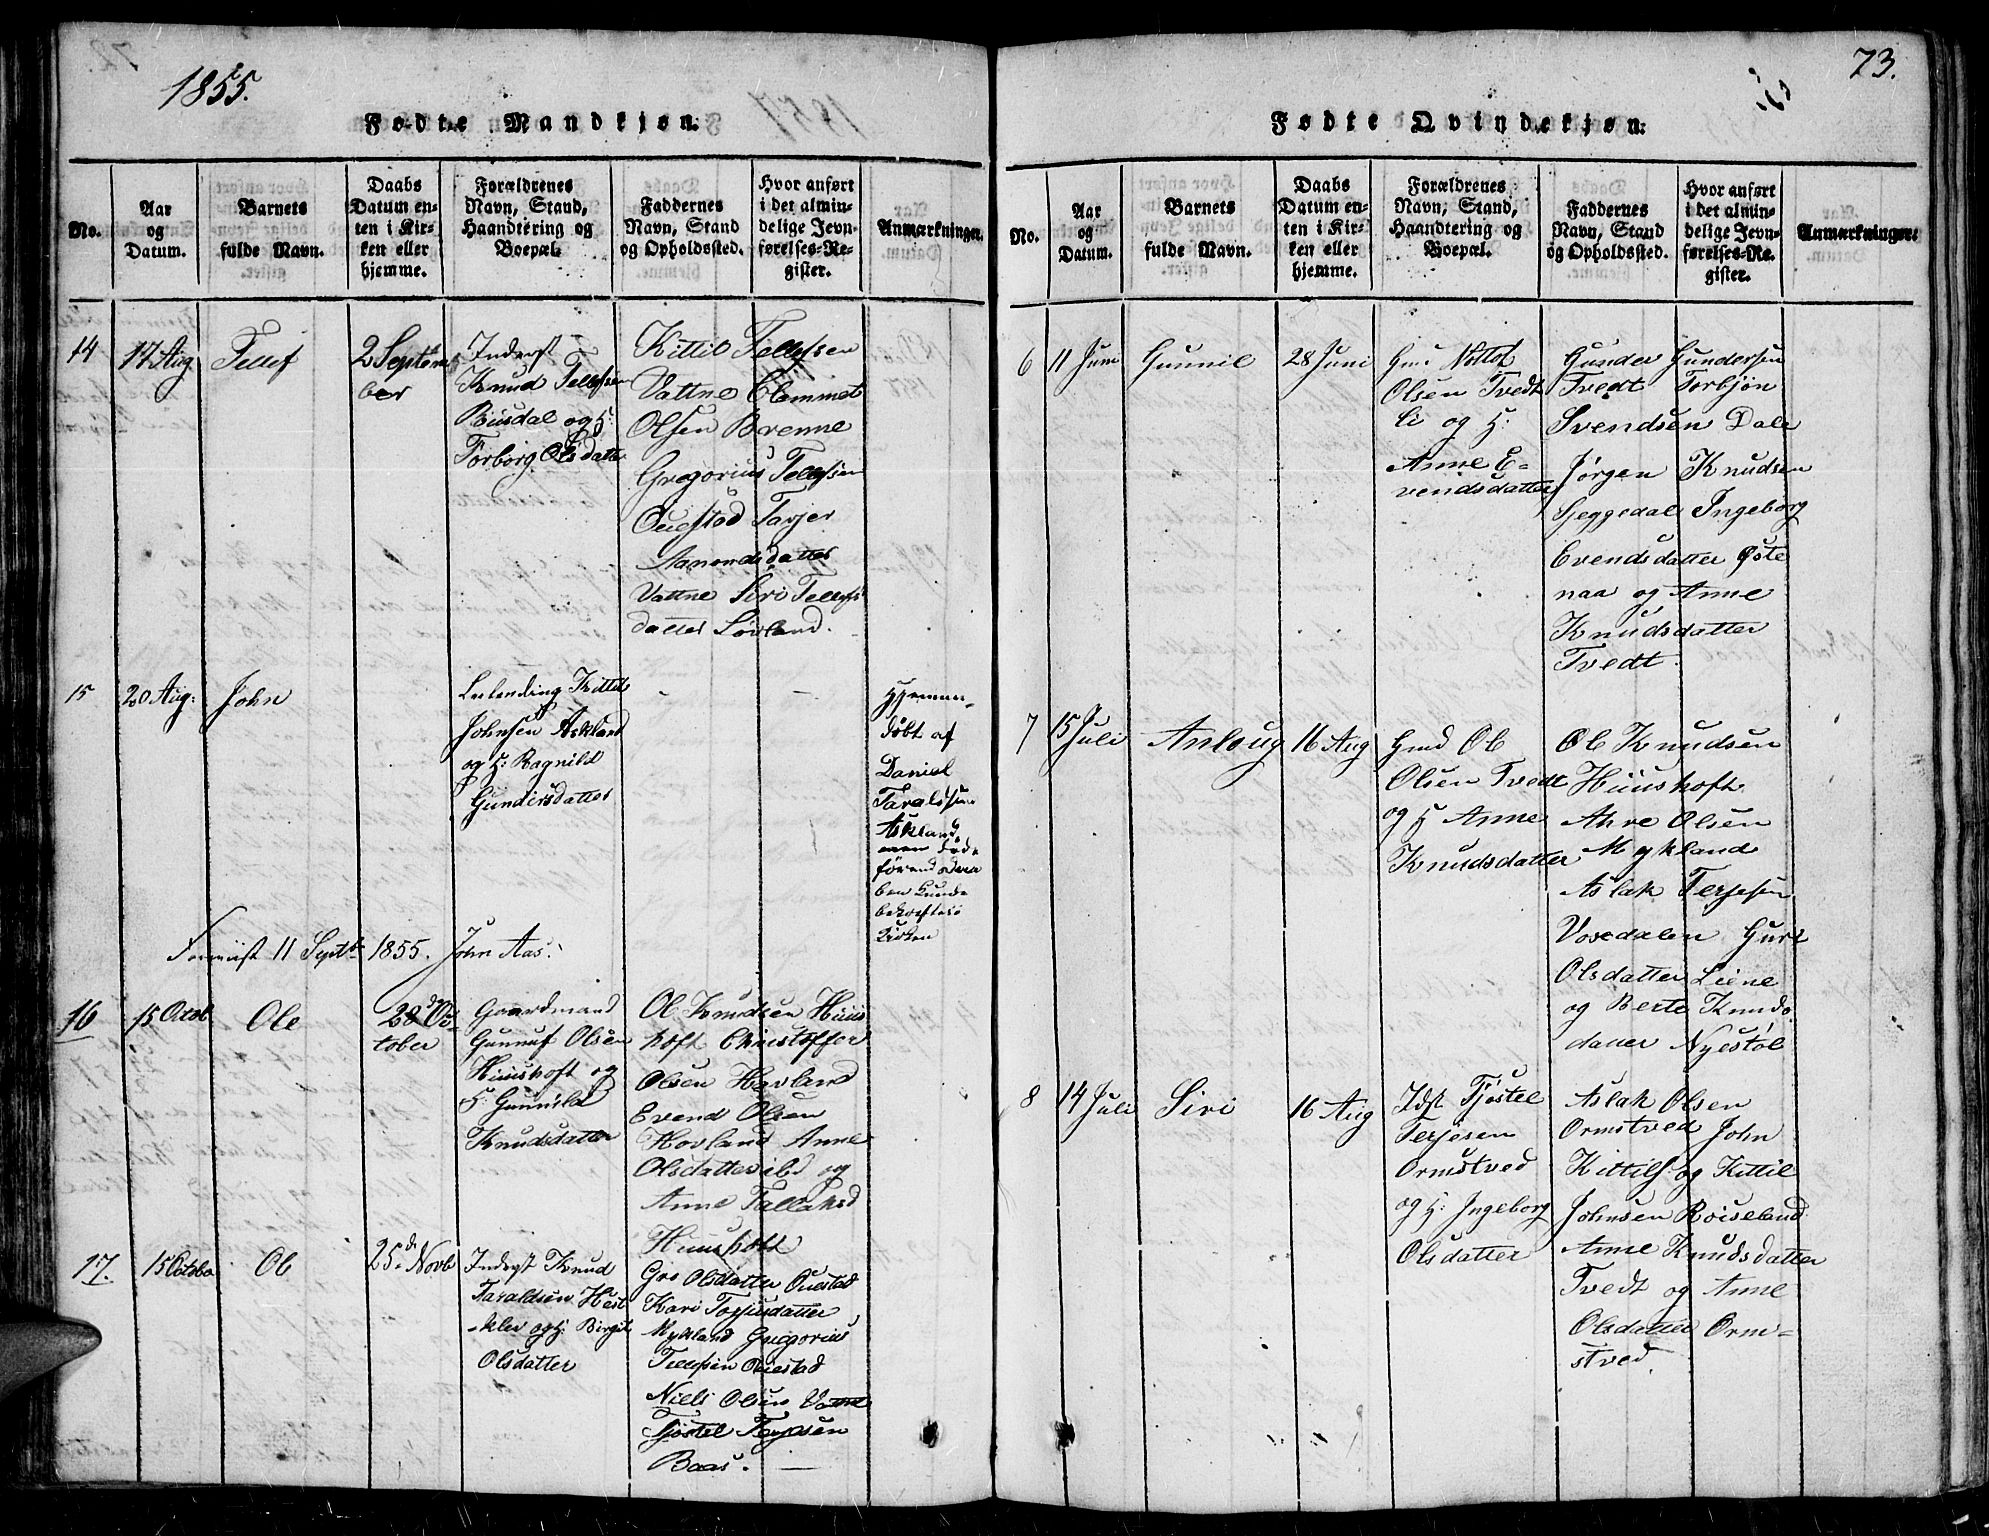 1855.
Fødte Mandkjøn:
No.
Aar
og
Datum.
Barnets
fulde Navn.
Daabs
Datum en-
ten i Kir-
ken eller
hjemme.
Forældrenes
Navn, Stand,
Haandtering og
Boepæl.
Faddernes
Navn, Stand
og Opholdssted.
Hvor anført
i det almin-
delige Jevn-
førelses-Re-
gister.
Anmærkninger.
14
17 Aug
Tellef
2 Septem
ber
Inderst
Knud Tellefsen
Buusdal og H:
Torborg Olsdatte
Kittil Tellefsen
Vattne Clemmet
Olsen Brenne
Gregorius Tellefsen
Ouestad Tarjer
Aanondsdatter
Vattne Siri Tellefs
datter Sørland.
15
20 Aug:
John
Leilending Kittil
Johnsen Askland
og H: Ragnild
Gundersdatter
Hjemme-
døbt af
Daniel
Taraldsen
Askland,
men død
før end
Kirken
11 Septbr 1855. John Aas.
16
15 Octob
Ole
28de Oc-
tober
Gaardmand
Gunnuf Olsen
Huushoft og
H: Gunnild
Knudsdatter
Ol Knudsen Huus
hoft Christoffer
Olsen Havland
Evend Olsen
Hovland Anne
Olsdatter ibd og
Anne Tallaksd
Huushoft
17.
15 Octobr
Ol
25de Novb
Inderst Knud
Taraldsen Hest
klev og H: Birgit
Olsdatter
Gro Olsdatter Ouestad
Kari Torjusdatter
Mykland Gregorius
Tellefsen Ouestad
Niels Olsen Vattne
Tjøstel Terjesen
Baas.
73.
Fødte Qvindekjøn:
No.
Aar
og
Datum.
Barnets
fulde Navn.
Daabs
Datum en-
ten i Kir-
ken eller
hjemme.
Forældrenes
Navn, Stand,
Haandtering og
Boepæl.
Faddernes
Navn, Stand
og Opholdssted.
Hvor anført
i det almin-
delige Jevn-
førelses-Re-
gister.
Anmærkninger.
6
11 Juni
Gunnil
28 Juni
Gmd Nottof
Olsen Tvedt
li og H:
Anne E-
vendsdatter
Gunder Gundersen
Tvedt Torbjøn
Svendsen Dale
Jørgen Knudsen
Sjeggedal Ingeborg
Evendsdatter Øste
naa og Anne
Knudsdatter
Tvedt.
7
15 Juli
Anloug
16 Aug
Gmd Ol
Olsen Tvedt
og H Anne
Knudsdatter
Ol Knudsen
Huushoft
Olsen
Mykland
Aslak Terjesen
Vosedalen Guri
Olsdatter Liene
og Berte Knuds
datter Nyestøl
8
14 Juli
Siri
16 Aug
Idst Tjøstel
Terjesen
Ormstved
og H: Ingeborg
Olsdatter
Aslak Olsen
Ormstved John
Kittils: og Kittil
Johnsen Roiseland
Anne Knudsdatter
Tvedt og Anne
Olsdatter Orm-
stved.